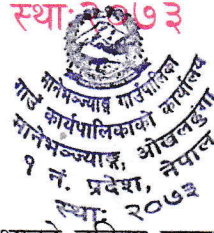 स्था: २०७३
मानेभञ्ज्याङ्ग गाउँपालिका
गाउँ कार्यपालिकाको कार्यालय
मानेभञ्ज्याङ्ग, ओखलढुंगा
१ नं. प्रदेश, नेपाल
स्था: २०७३